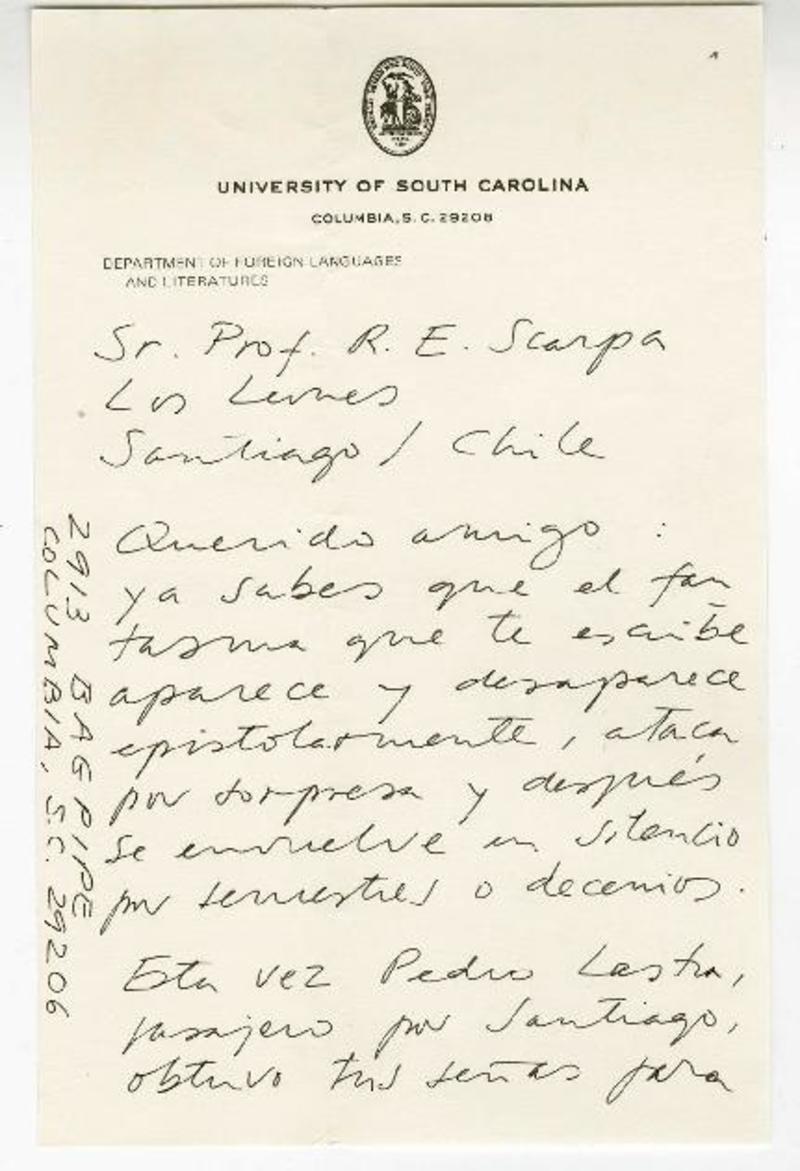 UNIVERSITY OF SOUTH CAROLINA
COLUMBIA, S. C. 29208
DEPARTMENT OF FOREIGN LANGUAGES
AND LITERATURES
Sr. Prof. R. E. Scarpa
Los Leones
Santiago / Chile
Querido amigo :
ya sabes que el fan
tasma que te escribe
aparece y desaparece
epistolarmente, ataca
por sorpresa y después
se envuelve en silencio
por semestres o decenios.
Esta vez Pedro Lastra,
pasajero por Santiago,
obtuvo tus señas para
2913 BAGPIPE
COLUMBIA, S.C. 29206